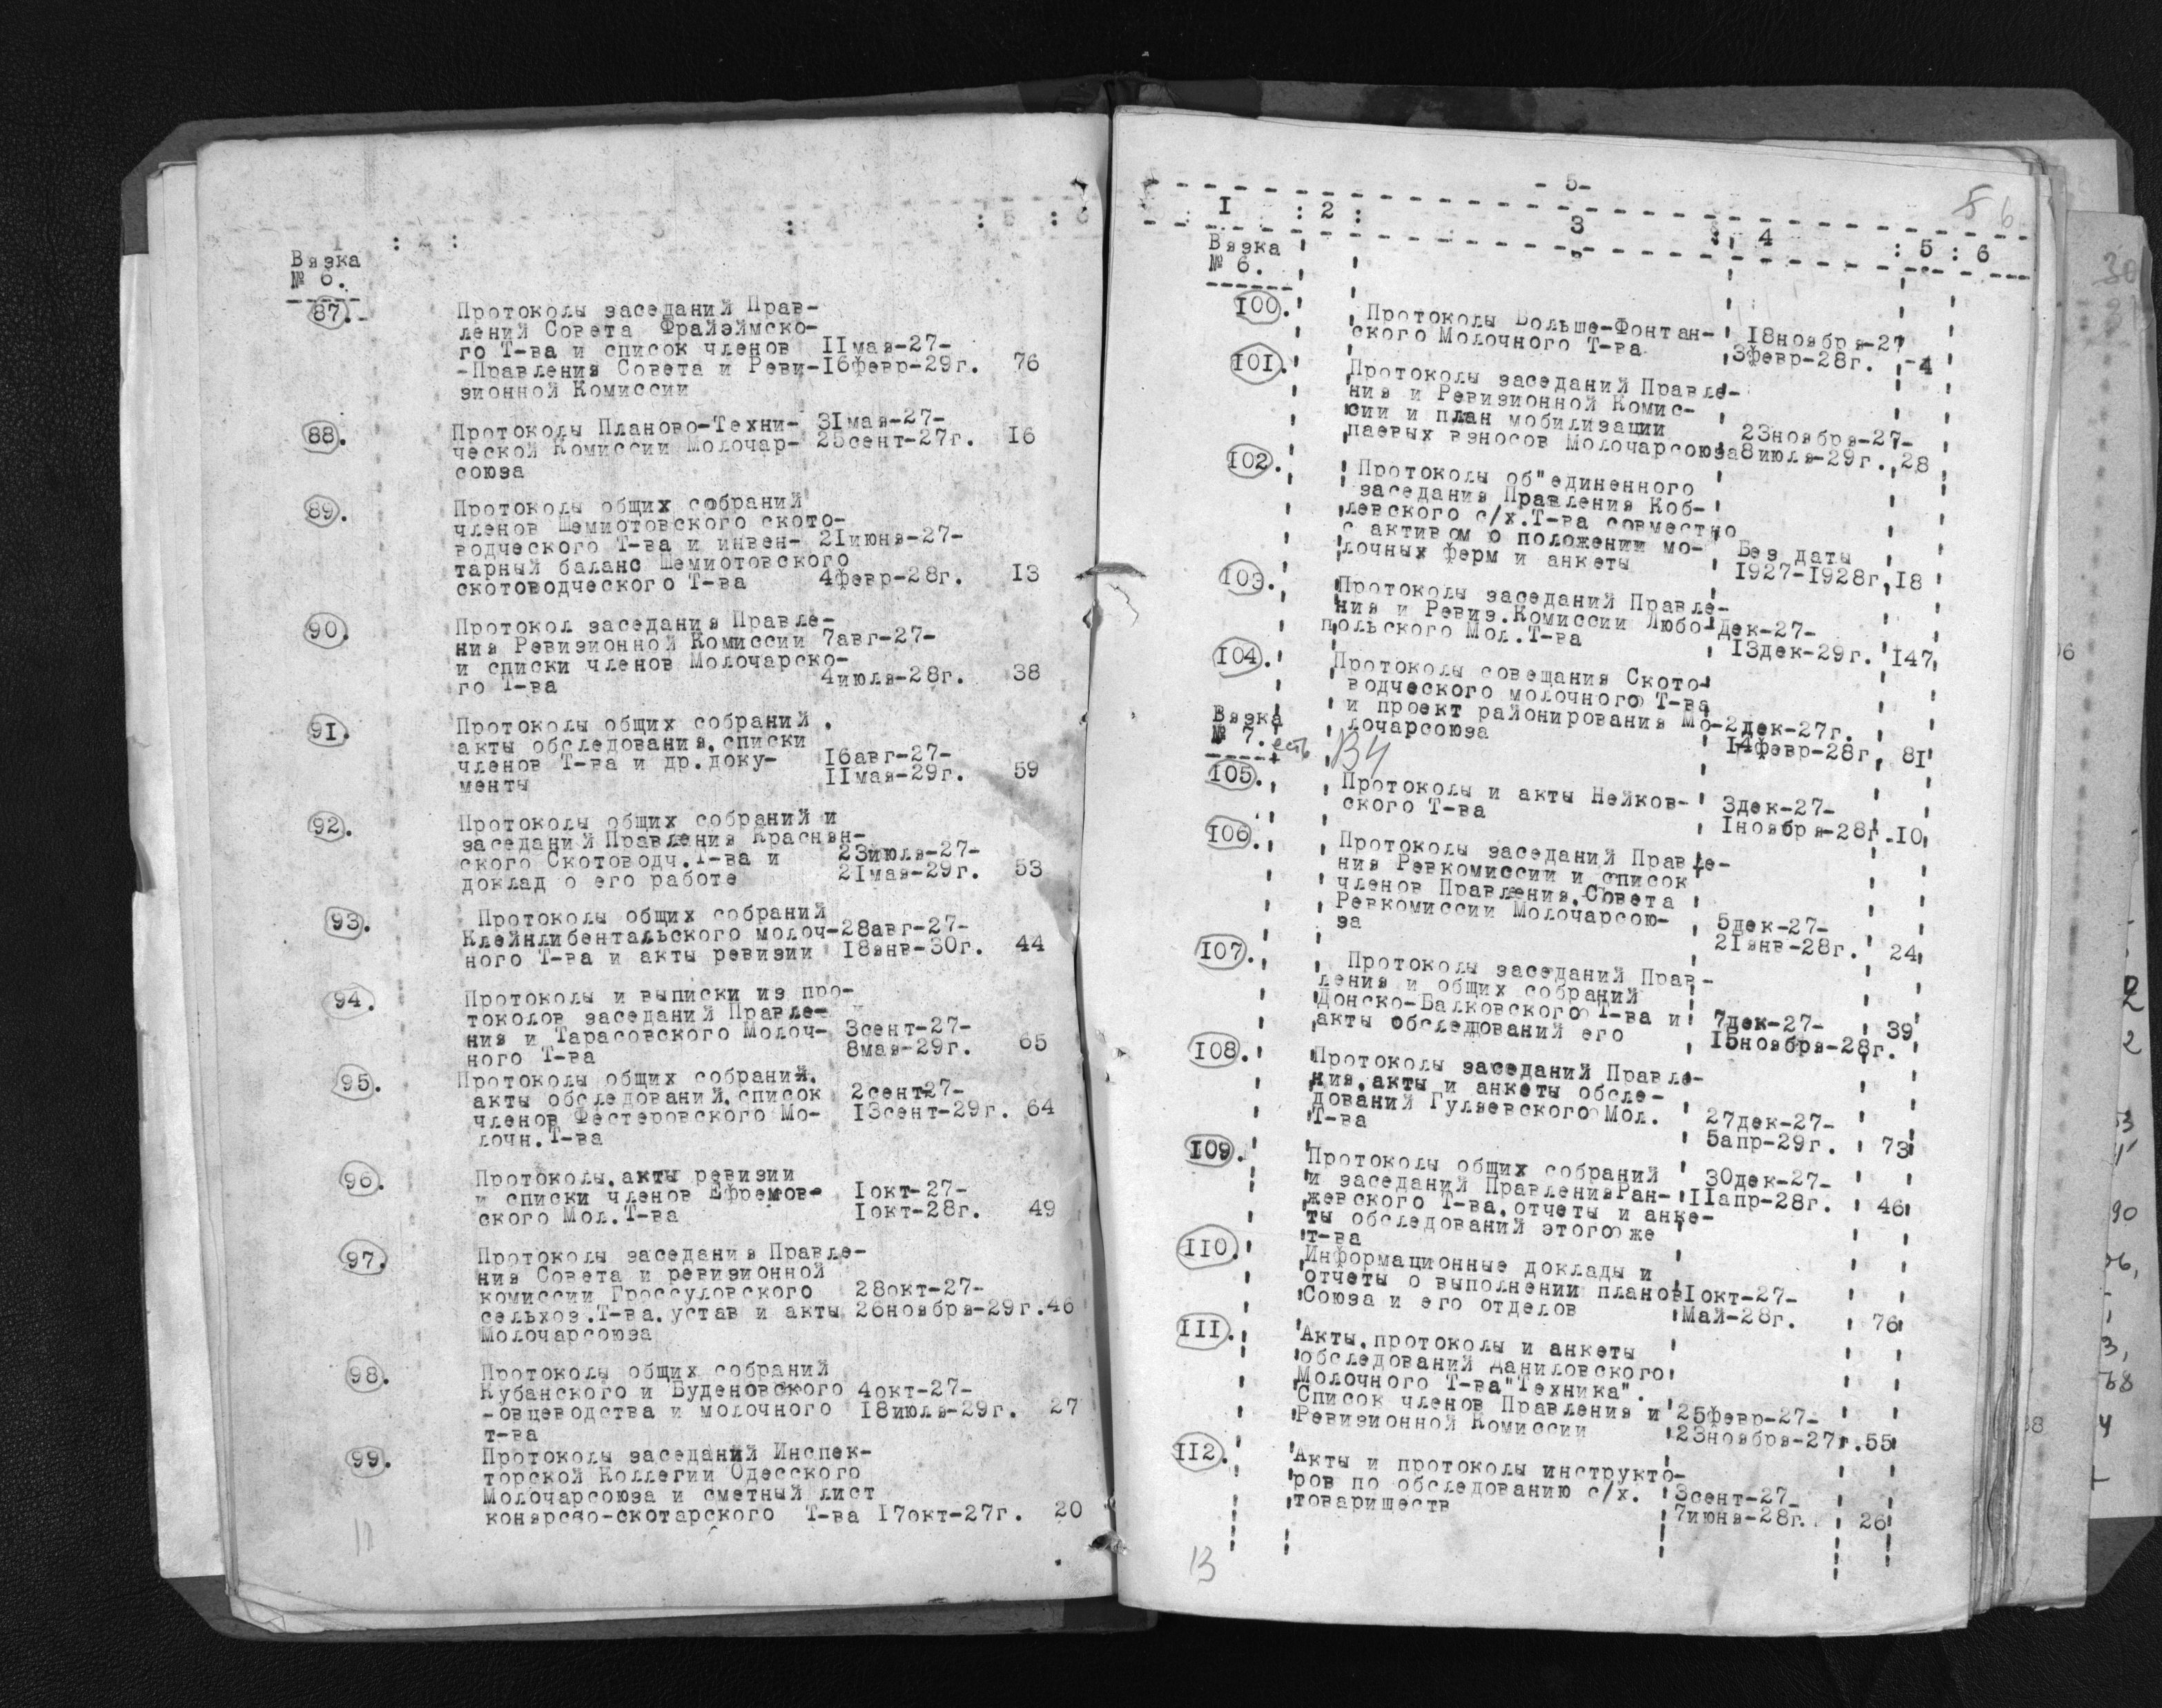 1 : 2 : 3 : 4 : 5 : 6
Вязка
№ 6.
87. Протоколы заседаний Прав-
лений Совета Фрайэймско-
го Т-ва и список членов 11мая-27-
-Правления Совета и Реви-16февр-29г. 76
зионной Комиссии
88. Протоколы Планово-Техни- 31мая-27-
ческой Комиссии Молочар- 25сент-27г. 16
союза
89. Протоколы общих собраний
членов Шемиотовского ското-
водческого Т-ва и инвен- 21июня-27-
тарный баланс Шемиотовского
скотоводческого Т-ва 4февр-28г. 13
90. Протокол заседания Правле-
ния Ревизионной Комиссии 7авг-27-
и списки членов Молочарско-
го Т-ва 4июля-28г. 38
91. Протоколы общих собраний ,
акты обследования,списки
членов Т-ва и др.доку- 16авг-27-
менты 11мая-29г. 59
92. Протоколы общих собраний и
заседаний Правления Краснян-
ского Скотоводч.Т-ва и 23июля-27-
доклад о его работе 21мая-29г. 53
93. Протоколы общих собраний
Клейнлибентальского молоч-28авг-27-
ного Т-ва и акты ревизии 18янв-30г. 44
94. Протоколы и выписки из про-
токолов заседаний Правле-
ния и Тарасовского Молоч- 3сент-27-
ного Т-ва 8мая-29г. 65
95. Протоколы общих собраний,
акты обследований,список 2сент27-
членов Фестеровского Мо- 13сент-29г. 64
лочн.Т-ва
96. Протоколы,акты ревизии
и списки членов Ефремов- 1окт-27-
ского Мол.Т-ва 1окт-28г. 49
97. Протоколы заседания Правле-
ния Совета и ревизионной
комиссии Гроссуловского 28окт-27-
сельхоз.Т-ва,устав и акты 26ноября-29г.46
Молочарсоюза
98. Протоколы общих собраний
Кубанского и Буденовского 4окт-27-
-овцеводства и молочного 18июля-29г. 27
т-ва
99. Протоколы заседаний Инспек-
торской Коллегии Одесского
Молочарсоюза и сметный лист
конярсво-скотарского Т-ва 17окт-27г. 20
-5-
6
I : 2 : 3 : 4 : 5 : 6
Вязка
№ 6.
100. Протоколы Больше-Фонтан- 18ноября-27
ского Молочного Т-ва 3февр-28г. -4
101. Протоколы заседаний Правле-
ния и Ревизионной Комис-
сии и план мобилизации 23ноября-27-
паевых взносов Молочарсоюза8июля-29г. 28
102. Протоколы об"единенного
заседания Правления Коб-
левского с/х.Т-ва совместно
с активом о положении мо- Без даты
лочных ферм и анкеты 1927-1928г. 18
103. Протоколы заседаний Правле-
ния и Ревиз.Комиссии Любо-Дек-27-
польского Мол.Т-ва 13дек-29г. 147
104. Протоколы совещания Ското-
водческого молочного Т-ва
и проект районирования Мо-2дек-27г.
лочарсоюза 14февр-28г. 81
Вязка
№ 7. есть
105. Протоколы и акты Нейков- 3дек-27-
ского Т-ва 1ноября-28г.10
106. Протоколы заседаний Правле-
ния Ревкомиссии и список
членов Правления,Совета
Ревкомиссии Молочарсою- 5дек-27-
за 21янв-28г. 24
107. Протоколы заседаний Прав-
ления и общих собраний
Донско-Балковского Т-ва и 7дек-27- 39
акты обследований его 15ноября-28г.
108. Протоколы заседаний Правле-
ния,акты и анкеты обсле-
дований Гуляевского Мол. 27дек-27-
Т-ва 5апр-29г. 73
109. Протоколы общих собраний 30дек-27-
и заседаний ПравленияРан- 11апр-28г. 46
жевского Т-ва,отчеты и анке-
ты обследований этого же
т-ва
110. Информационные доклады и
отчеты о выполнении планов1окт-27-
Союза и его отделов Май-28г. 76
111. Акты,протоколы и анкеты
обследований Даниловского
Молочного Т-ва"Техника".
Список членов Правления и 25февр-27-
Ревизионной Комиссии 23ноября-27г.55
112. Акты и протоколы инструкто-
ров по обследованию с/х. 3сент-27-
товариществ 7июня-28г. 26
13